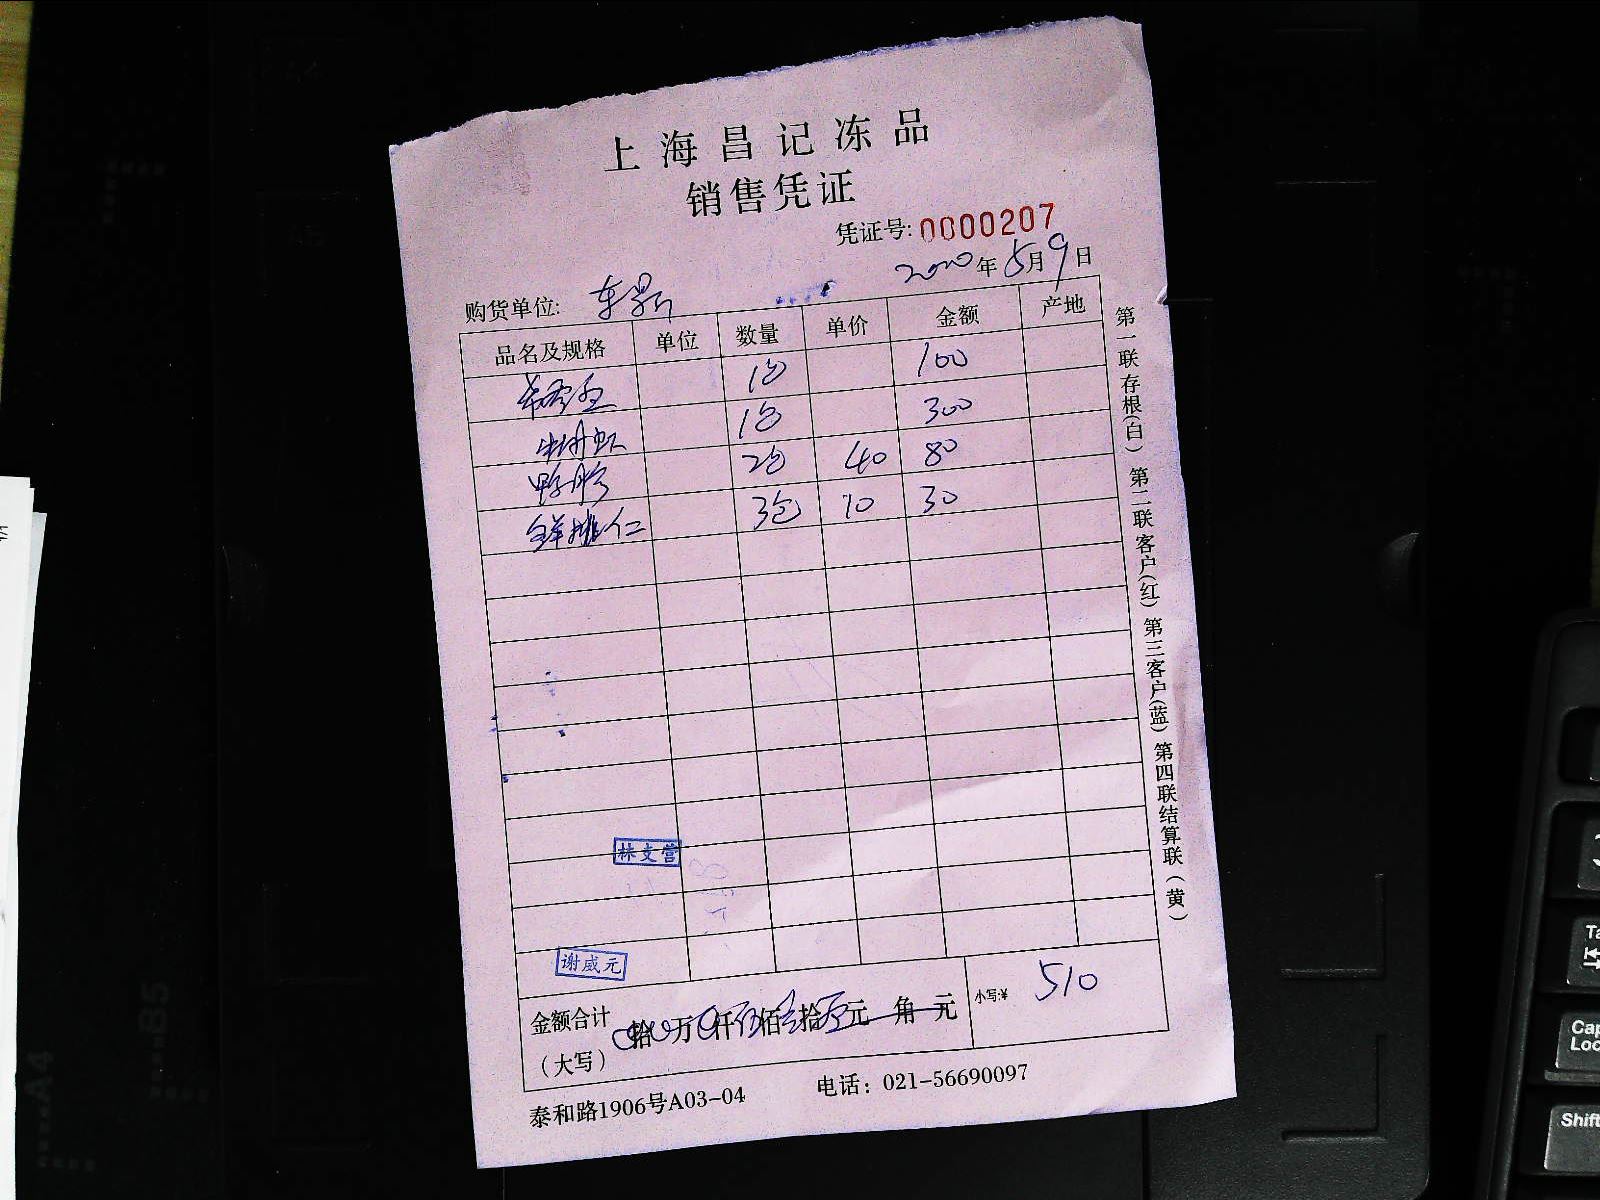 上海昌记冻品
销售凭证
凭证号: 0000207
2020年5月9日
购货单位:
品名及规格 单位 数量 单价 金额 产地
1包 100
1包 300
2包 40 80
鲜桃仁 3包 10 30
林支营
谢威元
金额合计 (大写) 拾 万 仟 伍佰 壹拾 元 角 元 小写:¥ 510
泰和路1906号A03-04 电话: 021-56690097
第一联存根(白) 第二联客户(红) 第三客户(蓝) 第四联结算联(黄)
A4
B5
Tab
Caps Lock
Shift